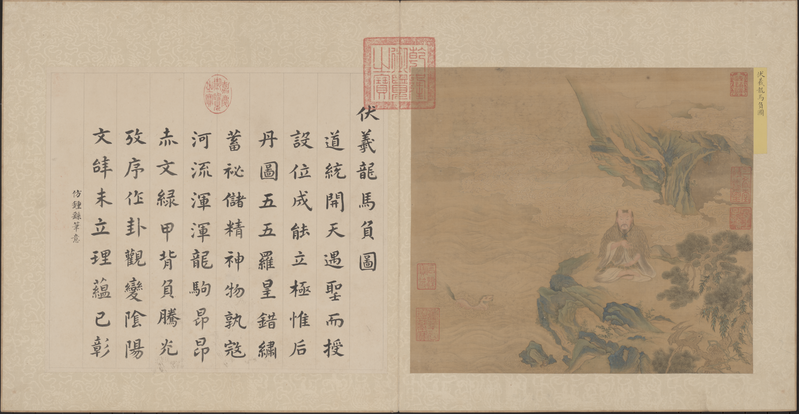 伏羲龍馬負圖
乾隆御覽之寶
伏羲龍馬負圖
道統開天遇聖而授
設位成能立極惟后
丹圖五五羅星錯繡
蓄祕儲精神物孰寇
河流渾渾龍駒昂昂
赤文綠甲背負騰光
攷序作卦觀變隂陽
文未立理蘊已彰
仿鍾繇筆意